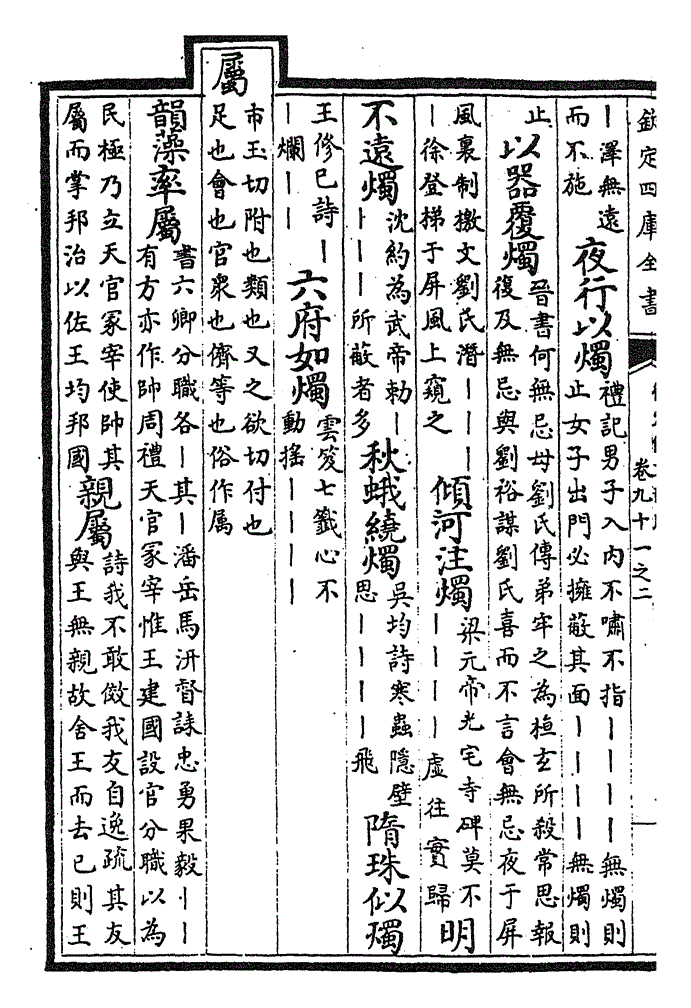 欽定四庫全書
卷九十一之二
丨澤無遠
而不施
夜行以燭
禮記男子入內不嘯不指丨丨丨丨無燭則
止女子出門必擁蔽其面丨丨丨丨無燭則
止
以器覆燭
晉書何無忌母劉氏傳弟牢之為桓玄所殺常思報
復及無忌與劉裕謀劉氏喜而不言會無忌夜于屏
風裏制檄文劉氏潛丨丨丨
丨徐登梯于屏風上窺之
傾河注燭
梁元帝光宅寺碑莫不
丨丨丨丨虛往實歸
明
不遠燭
沈約為武帝勑丨
丨丨丨所蔽者多
秋蛾繞燭
吳均詩寒蟲隱壁
思丨丨丨丨飛
隋珠似燭
王修已詩丨
丨爛丨丨
六府如燭
雲笈七籤心不
動搖丨丨丨丨
屬
市玉切附也類也又之欲切付也
足也會也官衆也儕等也俗作属
韻藻率屬
書六卿分職各丨其丨潘岳馬汧督誄忠勇果毅丨丨
有方亦作帥周禮天官冢宰惟王建國設官分職以為
民極乃立天官冢宰使帥其
屬而掌邦治以佐王均邦國
親屬
詩我不敢傚我友自逸疏其友
與王無親故舍王而去已則王